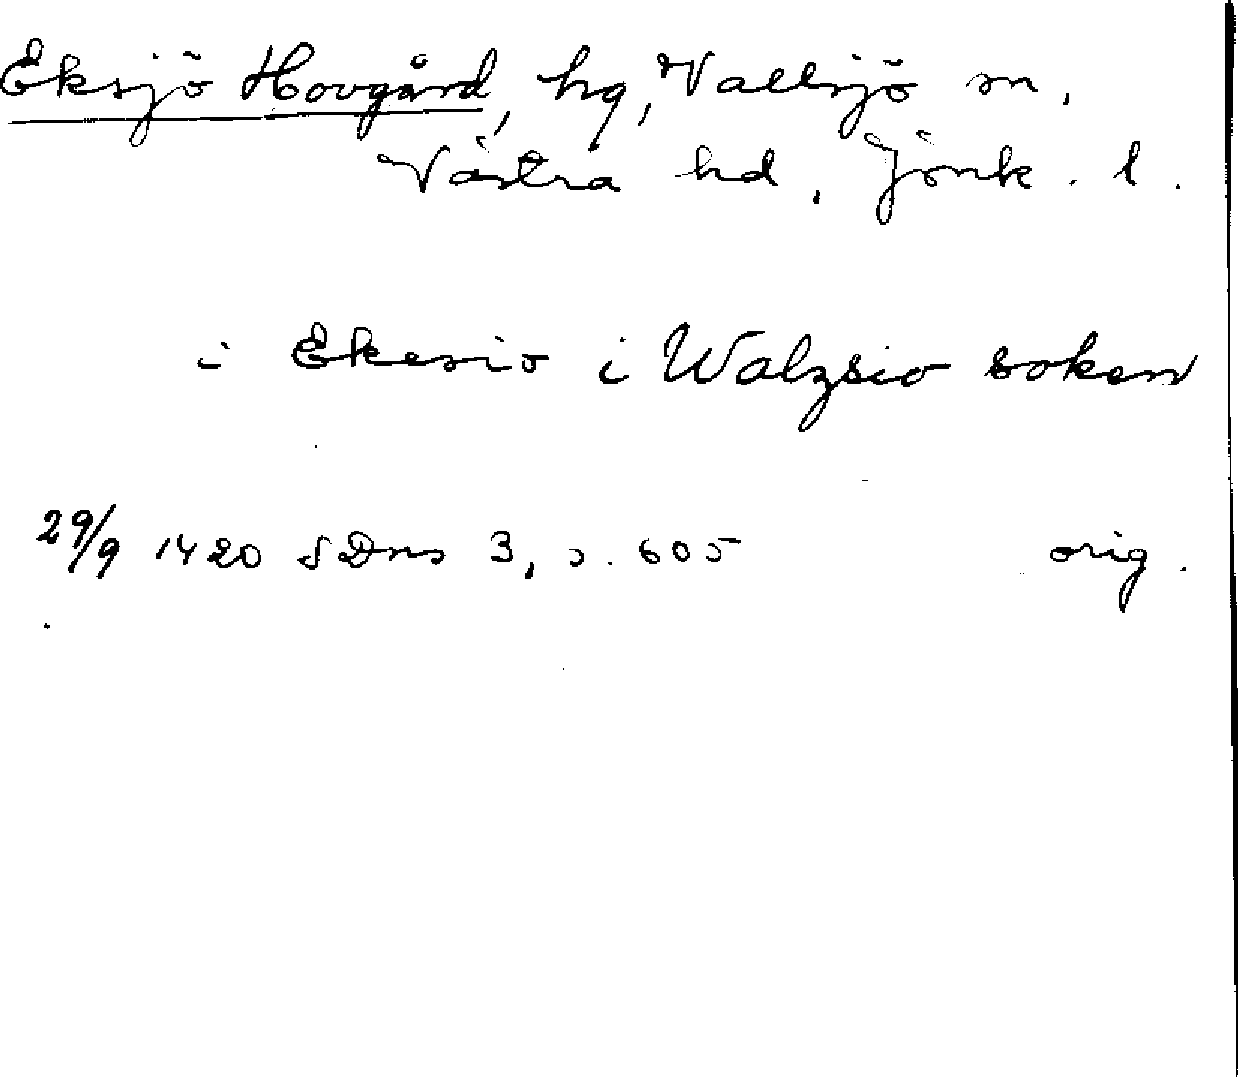 Eksjö Hovgård, hg, Vallsjö sn,
Västra hd, Jönk. l.
i Ekesio i Walzsio soken
29/9 1420 SDns 3, s. 605 orig.